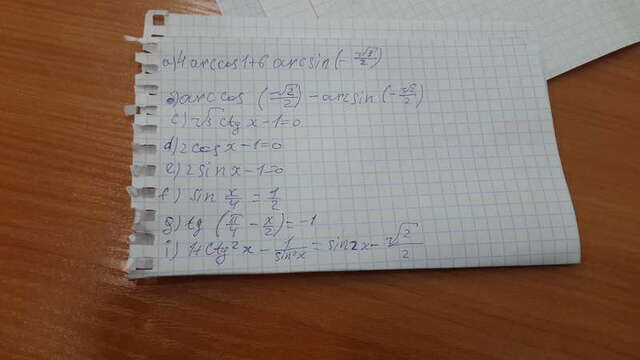 a) 4 arccos 1 + 6 arcsin (- √3/2)
b) arccos (√2/2) - arcsin (- √2/2)
c) √3 ctg x - 1 = 0
d) 2 cos x - 1 = 0
e) 2 sin x - 1 = 0
f) sin x/4 = 1/2
g) tg (π/4 - x/2) = -1
i) 1 + ctg² x - 1/sin² x = sin 2x - √2/2